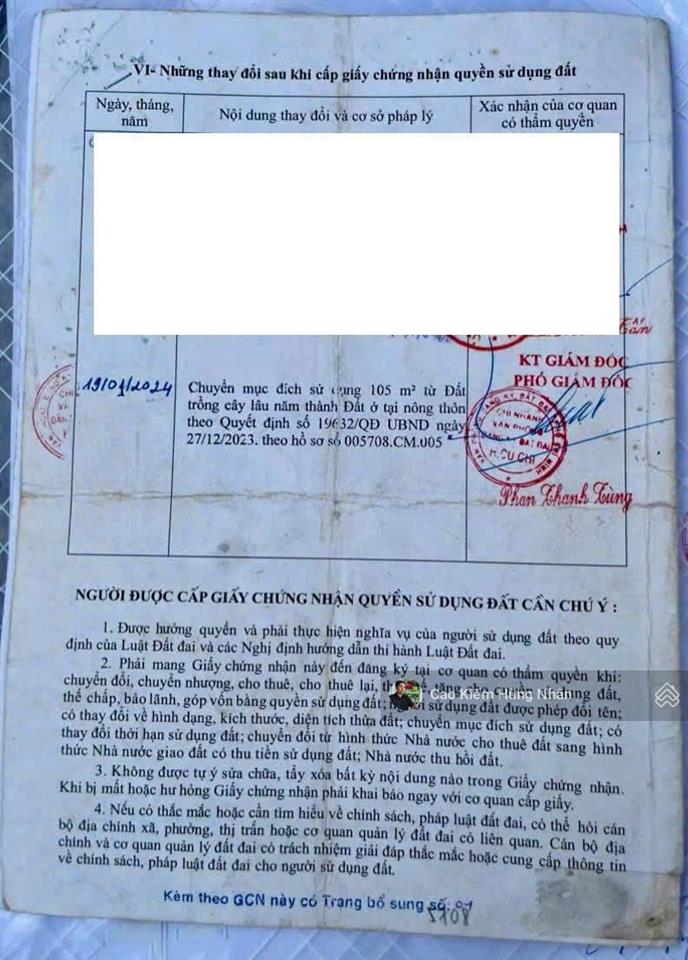 VI- Những thay đổi sau khi cấp giấy chứng nhận quyền sử dụng đất
Ngày, tháng, năm
Nội dung thay đổi và cơ sở pháp lý
Xác nhận của cơ quan có thẩm quyền
19/01/2024
Chuyển mục đích sử dụng 105 m² từ Đất
trồng cây lâu năm thành Đất ở tại nông thôn
theo Quyết định số 19632/QĐ UBND ngày
27/12/2023. theo hồ sơ số 005708.CM.005
KT GIÁM ĐỐC
PHÓ GIÁM ĐỐC
CHI NHÁNH
VĂN PHÒNG
ĐĂNG KÝ ĐẤT ĐAI
H.CỦ CHI
Phan Thanh Tùng
NGƯỜI ĐƯỢC CẤP GIẤY CHỨNG NHẬN QUYỀN SỬ DỤNG ĐẤT CẦN CHÚ Ý :
1. Được hưởng quyền và phải thực hiện nghĩa vụ của người sử dụng đất theo quy
định của Luật Đất đai và các Nghị định hướng dẫn thi hành Luật Đất đai.
2. Phải mang Giấy chứng nhận này đến đăng ký tại cơ quan có thẩm quyền khi:
chuyển đổi, chuyển nhượng, cho thuê, cho thuê lại, dụng đất,
Cao Kiếm Hùng Nhân
thế chấp, bảo lãnh, góp vốn bằng quyền sử dụng đất; sử dụng đất được phép đổi tên;
có thay đổi về hình dạng, kích thước, diện tích thửa đất; chuyển mục đích sử dụng đất; có
thay đổi thời hạn sử dụng đất; chuyển đổi từ hình thức Nhà nước cho thuê đất sang hình
thức Nhà nước giao đất có thu tiền sử dụng đất; Nhà nước thu hồi đất.
3. Không được tự ý sửa chữa, tẩy xóa bất kỳ nội dung nào trong Giấy chứng nhận.
Khi bị mất hoặc hư hỏng Giấy chứng nhận phải khai báo ngay với cơ quan cấp giấy.
4. Nếu có thắc mắc hoặc cần tìm hiểu về chính sách, pháp luật đất đai, có thể hỏi cán
bộ địa chính xã, phường, thị trấn hoặc cơ quan quản lý đất đai có liên quan. Cán bộ địa
chính và cơ quan quản lý đất đai có trách nhiệm giải đáp thắc mắc hoặc cung cấp thông tin
về chính sách, pháp luật đất đai cho người sử dụng đất.
Kèm theo GCN này có Trang bổ sung số: 01
5108